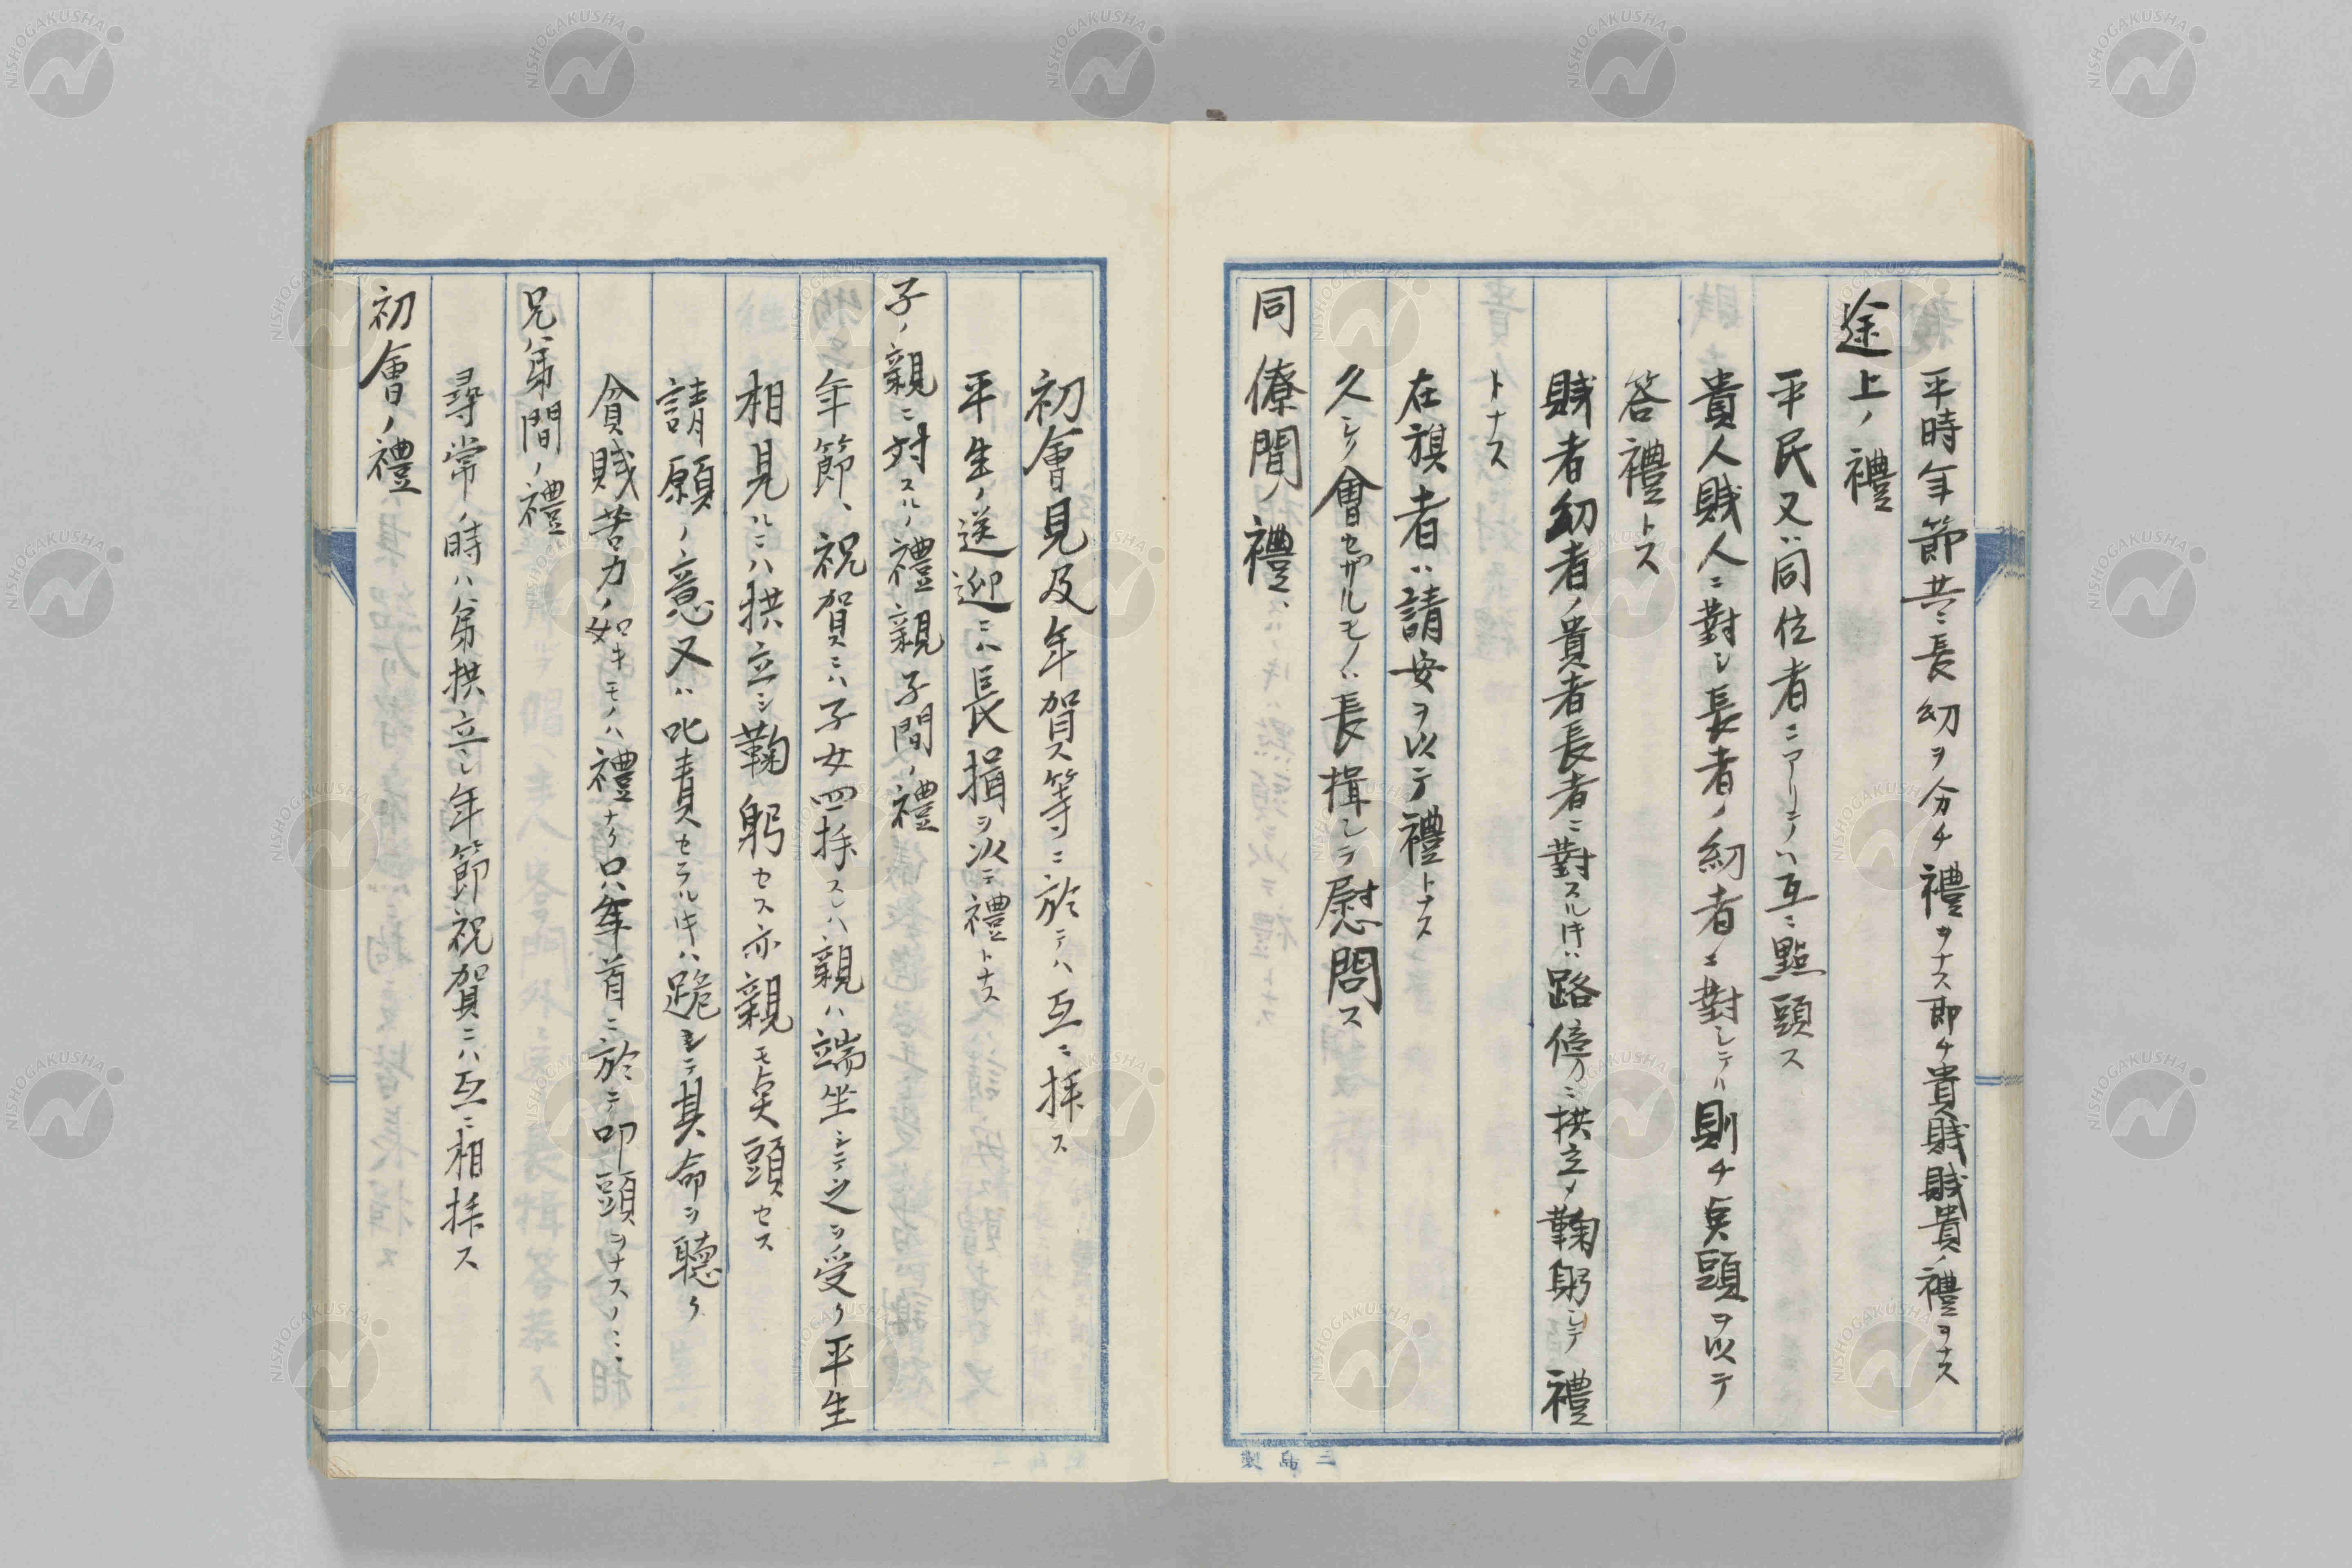 平時年節共ニ長幼ヲ分チ禮ヲナス即チ貴賤賤貴ノ禮ヲナス
途上ノ禮
平民又ハ同位者ニアリテハ互ニ點頭ス
貴人賤人ニ對シ長者ノ幼者ニ對シテハ則チ点頭ヲ以テ
答禮トス
賤者幼者ノ貴者長者ニ對スル時ハ路傍ニ拱立シ鞠躬シテ禮
トナス
在旗者ハ請安ヲ以テ禮トナス
久シク會セザルモノハ長揖シテ慰問ス
同僚間ノ禮、
初會見及年賀ス等ニ於テハ互ニ拝ス
平生ノ送迎ニハ長揖ヲ以テ禮トナス
子ノ親ニ対スルノ禮親子間ノ禮
年節、祝賀ニハ子女四拝スレハ親ハ端坐シテ之ヲ受ク平生
相見ルニハ拱立シ鞠躬セス亦親モ点頭セス
請願ノ意又ハ叱責セラル時ハ跪シテ其命ヲ聴ク
貧賤苦力ノ如キモノハ禮ナク只年首ニ於テ叩頭ヲナスノミ
兄ハ弟間ノ禮
尋常ノ時ハ弟拱立シ年節祝賀ニハ互ニ相拝ス
初會ノ禮
三島製
NISHOGAKUSHA